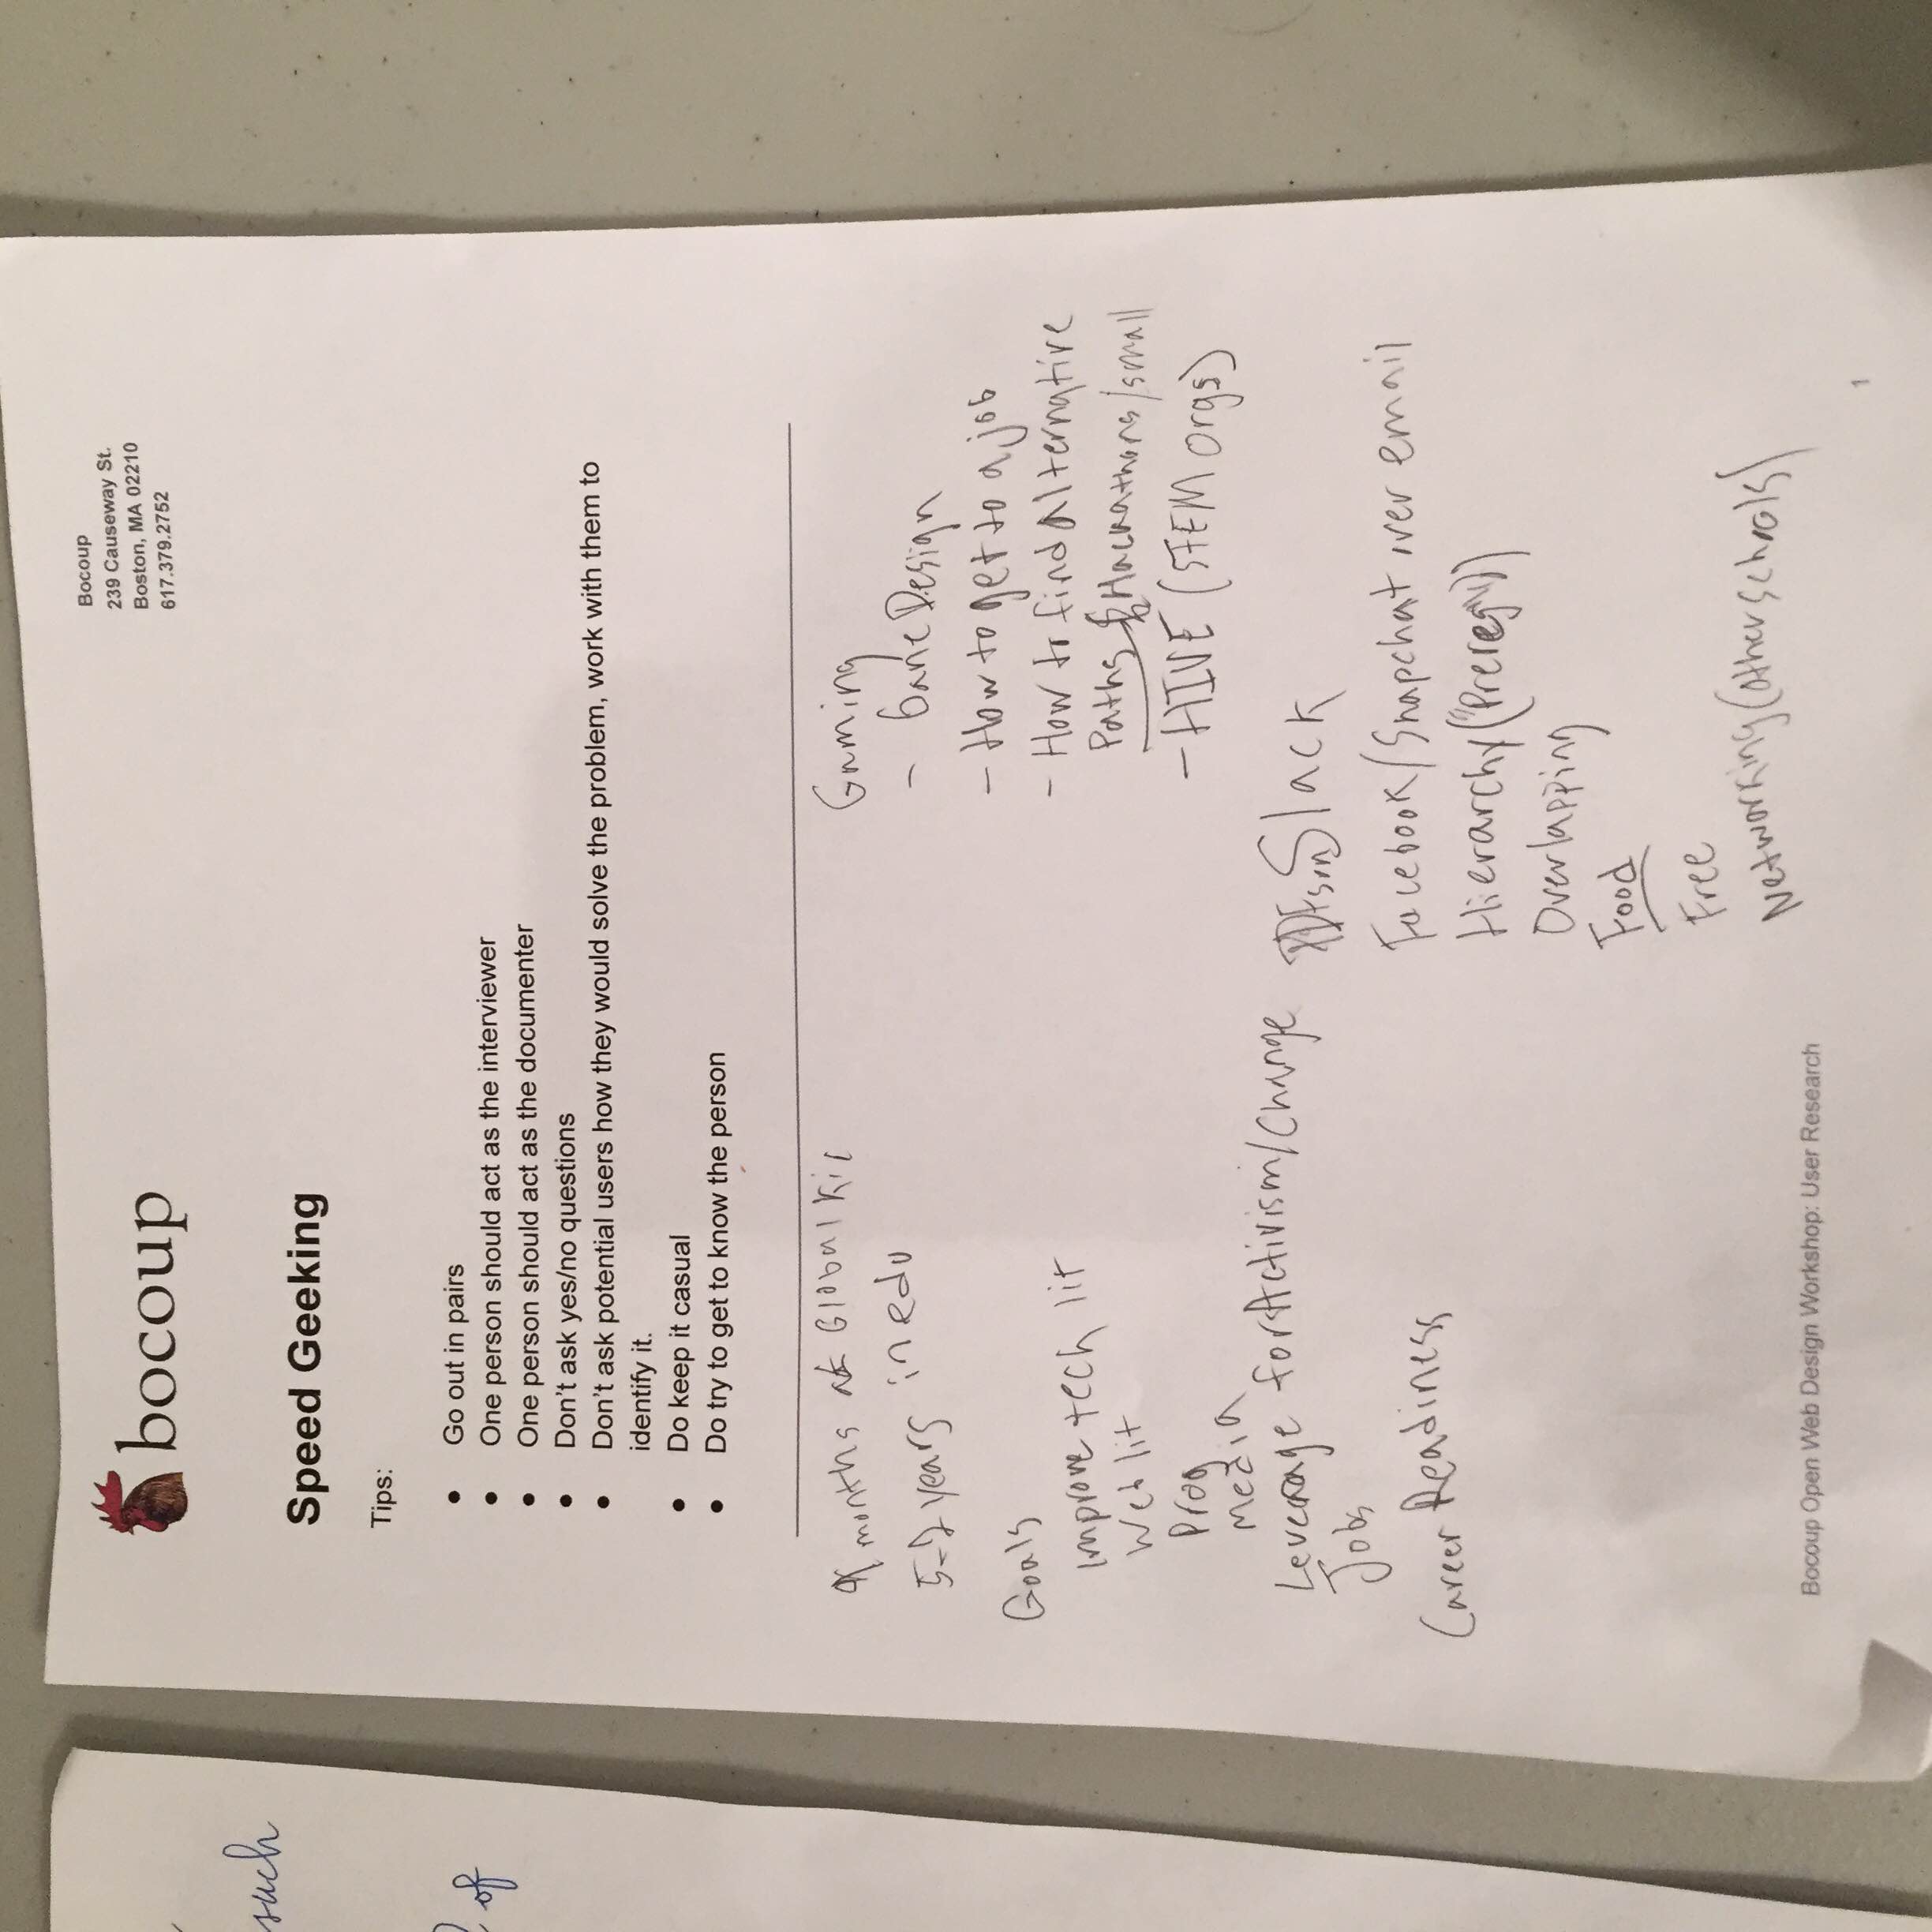 such
of
bocoup
Bocoup
239 Causeway St.
Boston, MA 02210
617.379.2752
Speed Geeking
Tips:
● Go out in pairs
● One person should act as the interviewer
● One person should act as the documenter
● Don't ask yes/no questions
● Don't ask potential users how they would solve the problem, work with them to
identify it.
● Do keep it casual
● Do try to get to know the person
months at Global
years in edu
Goals
Improve tech lit
Web lit
Prog
Media
Leverage for Activism/Change
Jobs
Career Readiness
Gaming
- Game Design
- How to get to a job
- How to find alternative
Paths Hackathons/small
- HIVE (STEM Orgs)
Slack
Facebook/Snapchat over email
Hierarchy ("Prereq")
Overlapping
Food
Free
Networking (other schools)
Bocoup Open Web Design Workshop: User Research
1